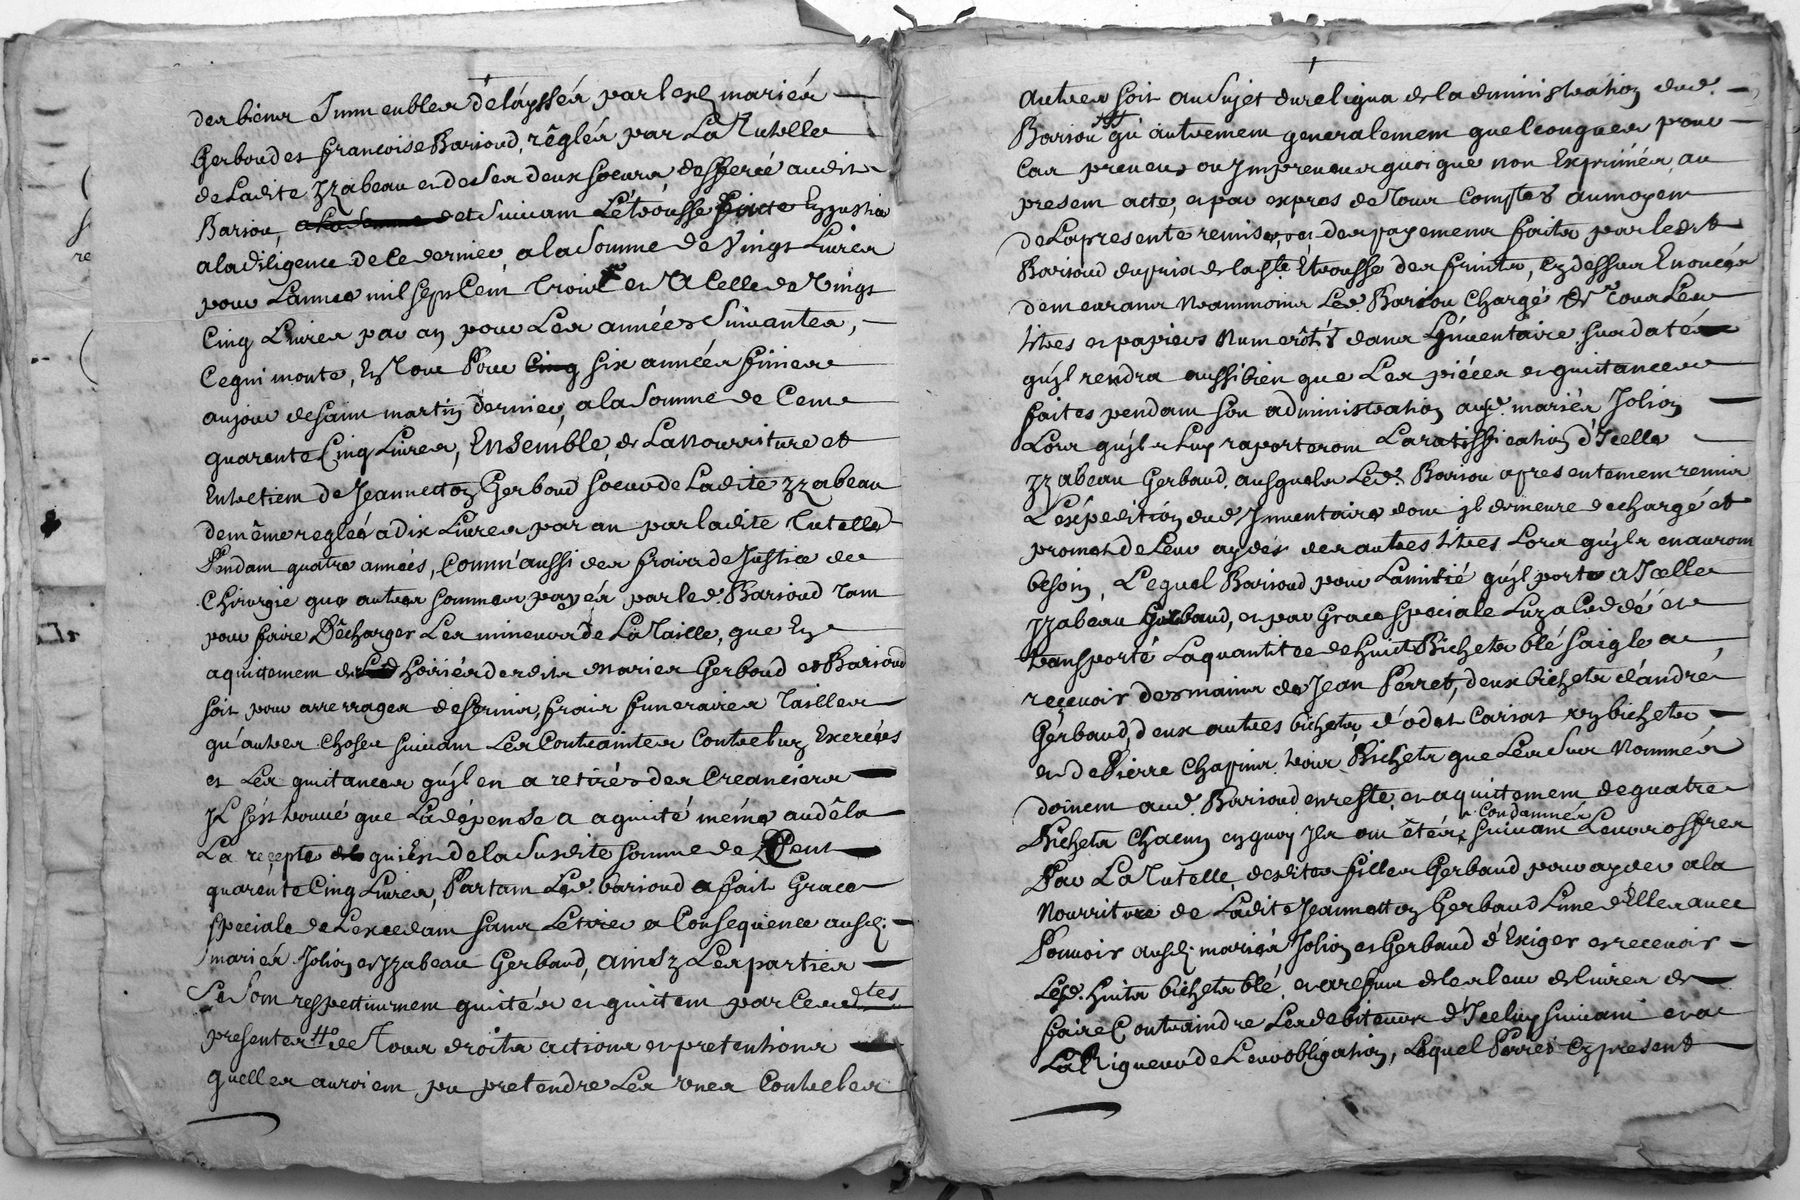 des biens Immeubles délayssés par lesd mariés
Gerboud et francoise Barioud, réglés par La Tutelle
de Ladite Izabeau et de ses deux soeurs defferée audit
Bariou, et Suivant L'étrousse faicte En justice
a la diligence de Ce dernier, a la Somme de Vingt Livres
pour L'année mil sept Cent Trois et A Celle de Vingt
Cinq Livres par an pour Les années Suivantes,
Ce qui monte, En Tout Pour Cinq six années finies
au jour de saint martin dernier, a la Somme de Cent
quarente Cinq Livres, Ensemble, de La Nourriture et
Entretient de Jeannetton Gerboud soeur de Ladite Izabeau
de même reglée a dix Livres par an par ladite Tutelle
Pendant quatre années, Comm'aussi des frais de Justice de
Chirurgie que autres sommes payés par led. Barioud Tant
pour faire Décharger Les mineurs de La Taille, que En
aquittement des hoiriés desdits Maries Gerboud et Barioud
soit pour arrerrages de servis, frais funeraires Tailles
qu'autres Choses suivant Les Contraintes Contre luy Exercées
et Les quitances qu'jl en a retirés des Creanciers
Jl s'est trouvé que La dépense a aquité même audêla
La recepte qui Est de la Susdite somme de Cent
quarente Cinq Livres, Partant Led. barioud a fait Grace
speciale de L'excedant sans Le tirer a Consequence ausd.
mariés Jolion et Izabeau Gerbaud, ainsy Les parties
Se Sont respectivement quités et quittent par Ces dtes
presentes de Tous droits actions et pretentions
quelles auroient pu pretendre Les unes Contre les
autres soit au Sujet du reliqua de la dministration dud.
Bariou qu'autrement generalement quelconques pour
Cas preveus ou Jmpreveus quoi que non Exprimés au
present acte, et par expres de Tous Comptes au moyent
de La presente remise, et des payements faits par ledit
Barioud du prix de lad. Etrousse des fruits, Cy dessus Enoncés
demeurant Neammoins Led. Bariou Chargé de Tous Les
titres et papiers Numerôtés dans L'inventaire susdaté
qu'jl rendra aussi bien que Les piéces et quitances
faites pendant son administration ausd. mariés Jolion
Lors qu'jls Luy raporteront La ratiffication d'Icelle
Izabeau Gerbaud. ausquels Led. Bariou a presentement remis
L'expedition dud Jnventaire dont jl demeure dechargé et
promet de Leur ayder des autres titres Lors qu'jls en auront
besoin, Lequel Barioud pour L'amitié qu'jl porte a Icelle
Izabeau Gerbaud, et par Grace speciale Luy a Ceddé et
transporté La quantitee de huit Bichets blé saigle a
reçevoir des mains de Jean Perret, deux bichets d'andré
Gerbaud, deux autres bichets d'odet Carrat un bichets
et de Pierre Chapuis trois Bichets que Les Sus Nommés
doivent aud. Barioud en reste, et aquittement de quatre
Bichets Chacun En quoy Jls ont êtés Condamnés suivant Leurs offres
Par La Tutelle desdites filles Gerbaud pour ayder a la
Nourriture de Ladite Jeannetton Gerbaud L'une d'Elles avec
Pouvoir ausd. mariés Jolion et Gerbaud d'Exiger et recevoir
Lesd. huits bichets blé, et a refus de les leur delivrer de
faire Contraindre Les debiteurs d'Iceluy suivant et a
La Rigueur de Leur obligation, Lequel Perret Cy present